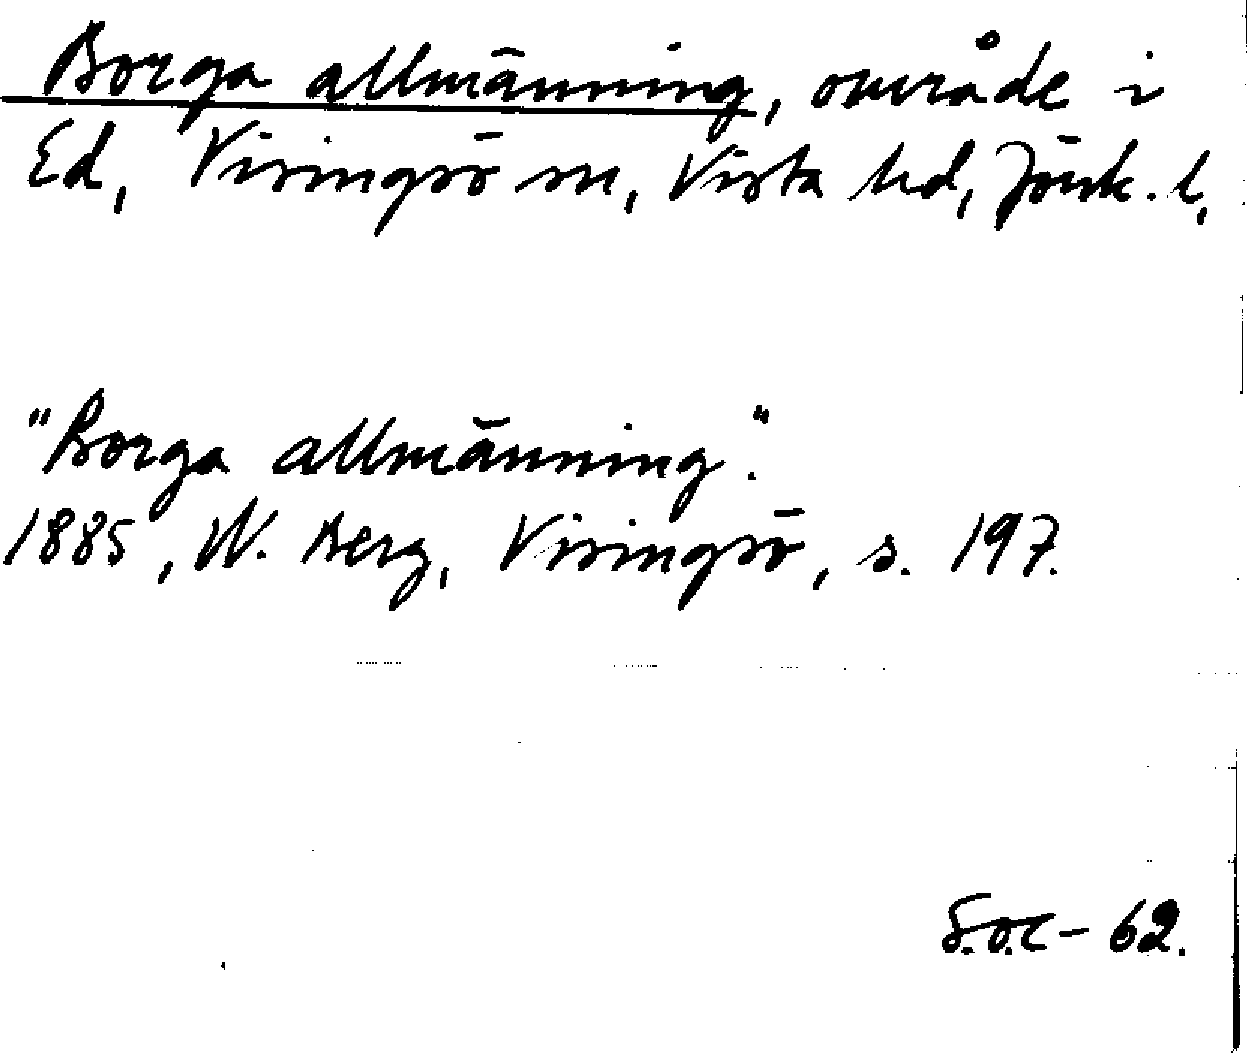 Borga allmänning, område i
Ed, Visingsö sn, Vista hd, Jönk. l,
"Borga allmänning".
1885, W. Berg, Visingsö, s. 197.
S.o.C - 62.